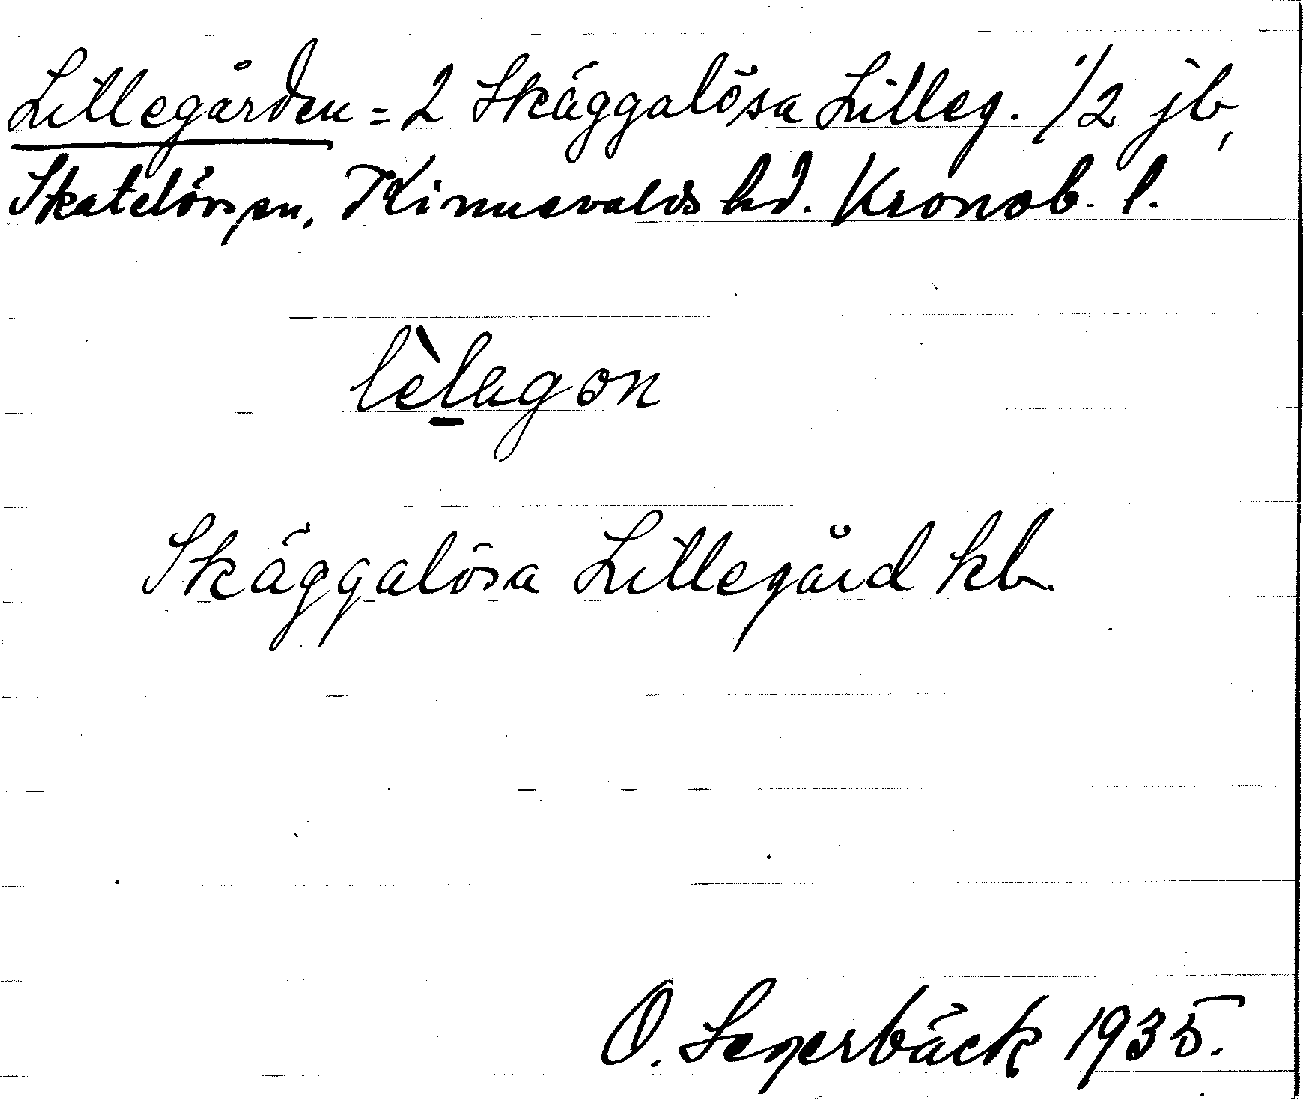 Lillegården = 2 Skäggalösa Lilleg. 1/2 jb,
Skatelövs sn, Kinnevalds hd. Kronob. l.
lèlagon
Skäggalösa Lillegård kb
O. Segerbäck 1935.